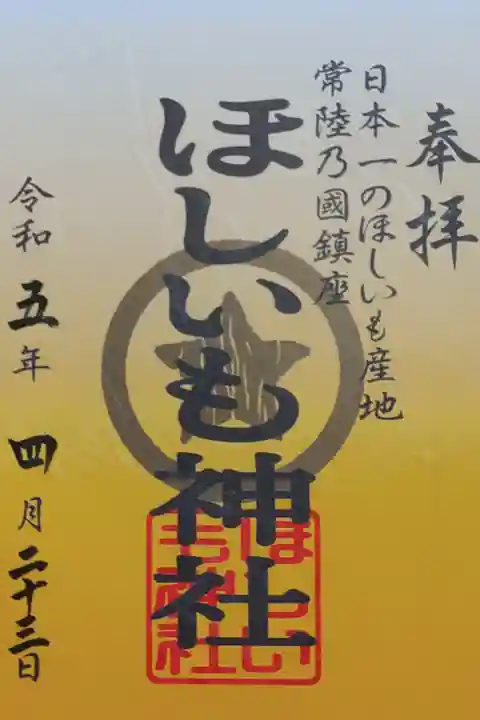 奉拝
日本一のほしいも産地
常陸乃國鎮座
ほしいも神社
ほしい
も神社
令和五年四月二十三日